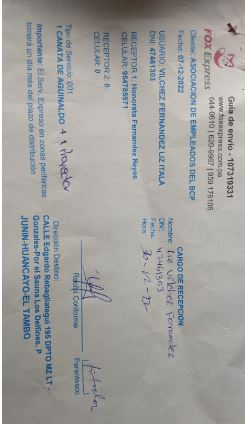 FOX Express
Guía de envío - 107319331
www.foxexpress.com.pe
644-0619 | 620-5907 | 959 176106
Cliente: ASOCIACION DE EMPLEADOS DEL BCP
Fecha: 07-12-2022
USUARIO: VILCHEZ FERNANDEZ LIZ ITALA
DNI: 47461303
RECEPTOR 1: Honorata Fernandez Reyes
CELULAR: 954785971
RECEPTOR 2: 0
CELULAR: 0
Tipo de Servicio: 001
1 CANASTA DE AGUINALDO + 1
Importante: El Serv. Expreso en zonas periféricas
tomará un día más del plazo de distribución
CARGO DE RECEPCION
Nombre: Liz Vilchez Fernandez
DNI: 47461303
Fecha:
Hora:
Recibí Conforme
Titular
Parentesco
Dirección Destino:
CALLE Edgardo Rebagliategui 195 DPTO MZ LT -
Gonzales-Por el Sauna Los Delfines, P
JUNIN-HUANCAYO-EL TAMBO